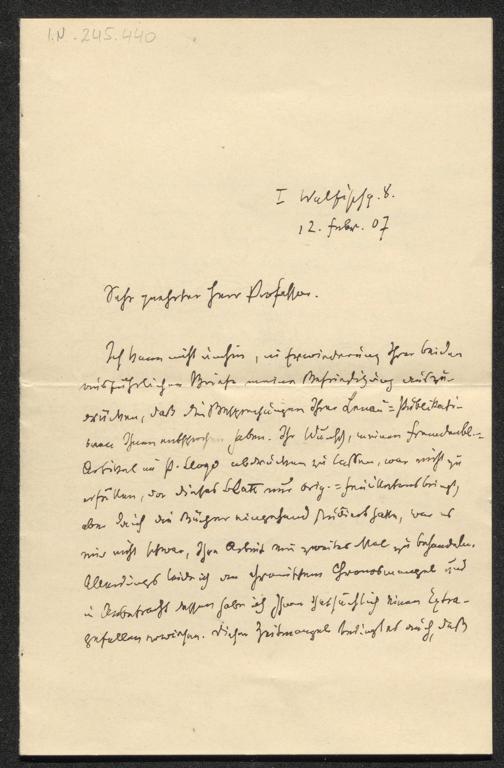 I.N. 245.440
I Walfischg. 8.
12. Febr. 07
Sehr geehrter Herr Professor.
Ich kann nicht umhin, in Erwiederung Ihrer beiden
ausführlichen Briefe meine Befriedigung auszu-
drücken, daß die Besprechungen Ihrer Lenau-Publikati-
onen Ihnen entsprochen haben. Ihr Wunsch, meinen Fremdenbl.-
Artikel im P. Lloyd abdrucken zu lassen, war nicht zu
erfüllen, da dieses Blatt nur orig.-Feuilletons bringt,
aber da ich die Bücher eingehend studiert hatte, war es
mir nicht schwer, Ihre Arbeit ein zweites Mal zu behandeln.
Allerdings leide ich an chronischem Chronosmangel und
in Anbetracht dessen habe ich Ihnen thatsächlich einen Extra-
gefallen erwiesen. Dieser Zeitmangel bedingt es auch, daß